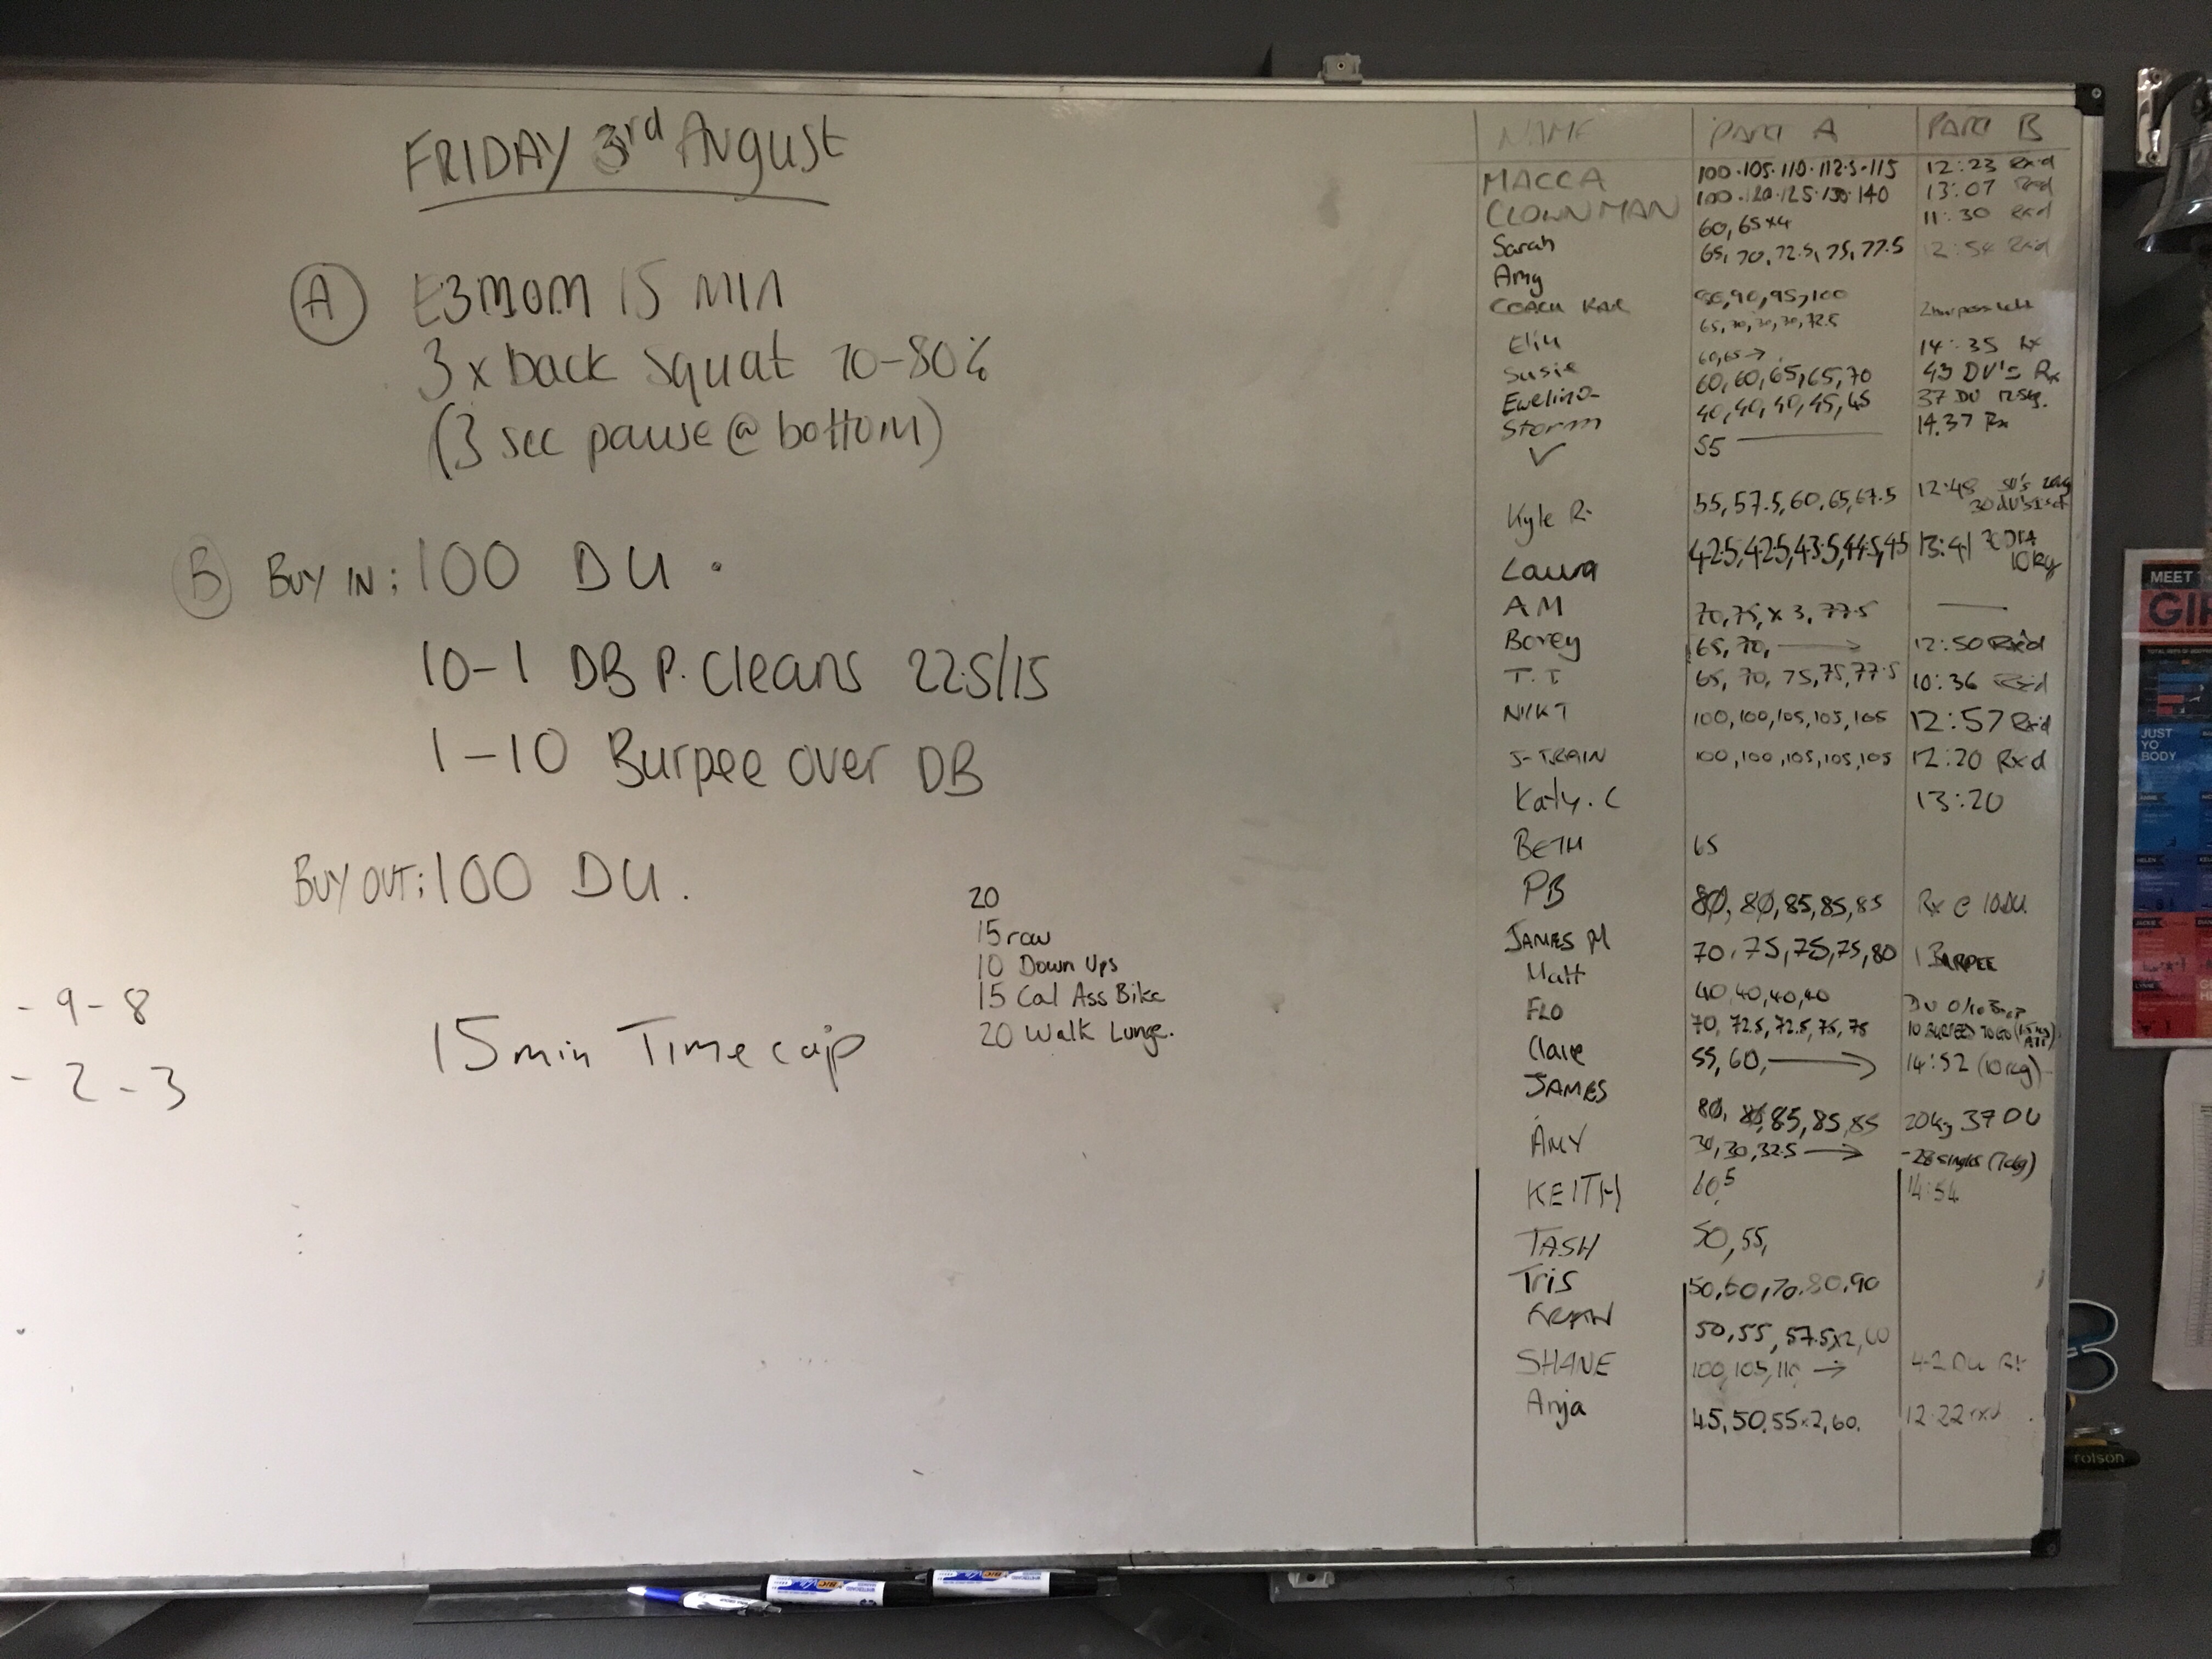 FRIDAY 3rd August
A E3MOM 15 MIN
3 x back squat 70-80%
(3 sec pause @ bottom)
B BUY IN: 100 DU .
10-1 DB P. Cleans 22.5/15
1-10 Burpee over DB
BUY OUT: 100 DU.
15 min Time cap
20
15 row
10 Down Ups
15 Cal Ass Bike
20 Walk Lunge.
- 9 - 8
- 2 - 3
NAME PART A PART B
MACCA 100.105.110.112.5.115 12:23 Rx'd
CLOWNMAN 100.120.125.130.140 13:07 Rxd
Sarah 60, 65x4 11:30 Rxd
Amy 65, 70, 72.5, 75, 77.5 12:54 Rxd
COACH 80,90,95,100
65,70,70,70,72.5
Susie 60,65→ 14:35 Rx
Ewelina 60,60,65,65,70 43 DU's Rx
Storm 40,40,40,45,45 37 DU
✓ 55 14.37 Rx
Kyle R. 55,57.5,60,65,67.5 12:48
30 du's
Laura 42.5,42.5,43.5,44.5,45 13:41
10kg
AM 70,75,x3,77.5 —
Borey 65,70,→ 12:50 Rx'd
T.T 65, 70, 75,75,77.5 10:36 Rx'd
100,100,105,105,105 12:57 Rx'd
J-TRAIN 100,100,105,105,105 12:20 Rxd
Katy.C 13:20
BETH 65
PB 80, 80,85,85,85 Rx @
JAMES M 70,75,75,75,80 1 BURPEE
Matt 40,40,40,40 DU
FLO 70,72.5,72.5,75,75 10 BURPEES TO GO
Claire 55,60,→ 14:52 (10kg)
JAMES 80, 85,85,85 20kg 37 DU
AMY 30,30,32.5→ -28 singles
KEITH 14:54
TASH 50,55,
Tris 50,60,70,80,90
50,55,57.5x2,60
SHANE 100,105,110→ 42 DU
Anja 45,50,55x2,60. 12:22 rxd
MEET
JUST
YO
BODY
rolson